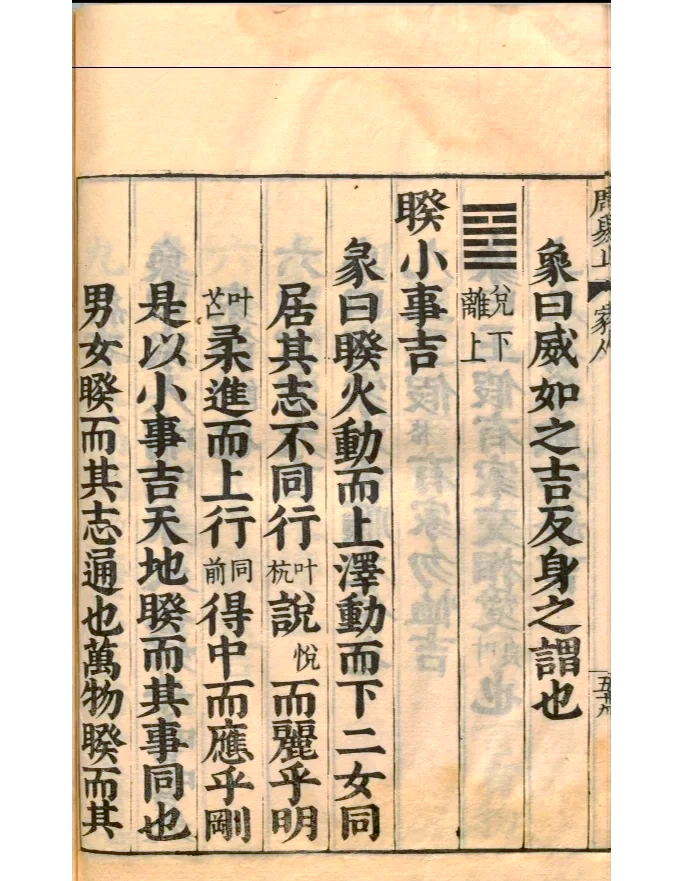 周易上
家人
五十九
象曰威如之吉反身之謂也
䷥兌下離上
睽小事吉
彖曰睽火動而上澤動而下二女同
居其志不同行叶杭說悅而麗乎明
叶芒柔進而上行同前得中而應乎剛
是以小事吉天地睽而其事同也
男女睽而其志通也萬物睽而其